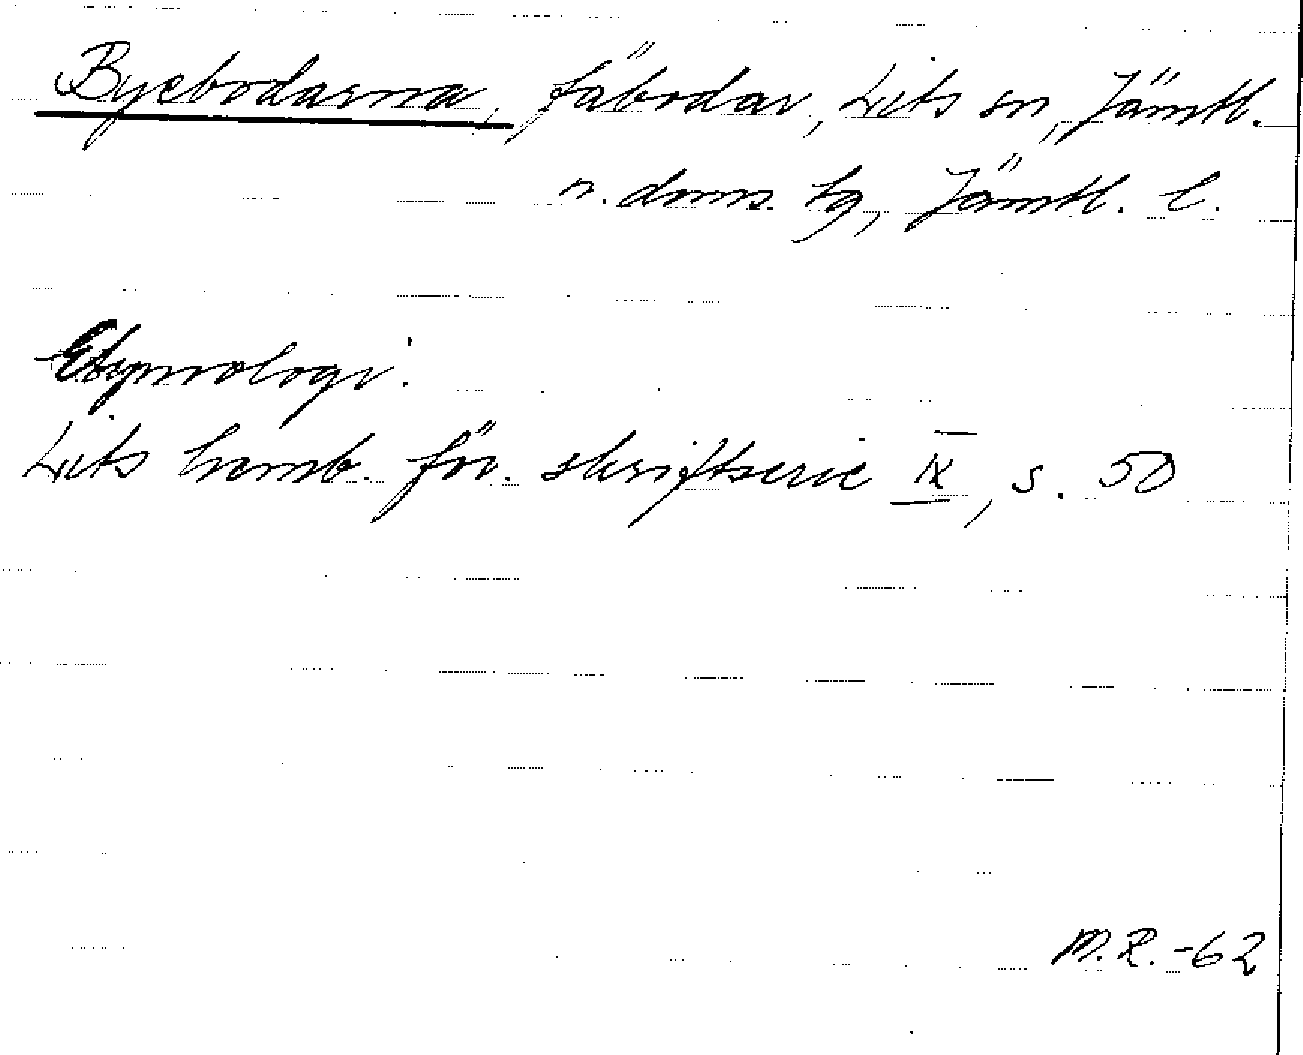 Byebodarna, fäbodar, Lits sn, Jämtl.
n. doms. tg, Jämtl. l.
Etymologi:
Lits hemb. för. skriftserie IX, s. 50
M.R. -62